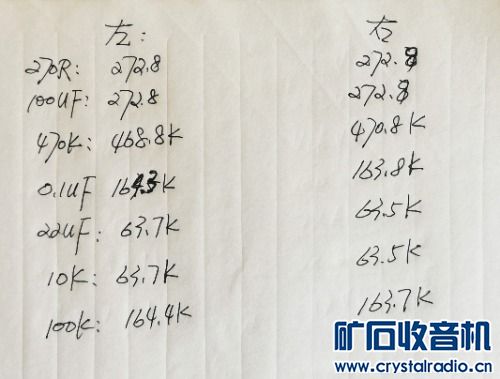 左: 左
270R: 272.8 272.8
100UF: 272.8 272.8
470K: 468.8K 470.8K
0.1UF 164.3K 163.8K
22UF: 63.7K 63.5K
10K: 63.7K 63.5K
100K: 164.4K 163.7K
矿石收音机
www.crystalradio.cn